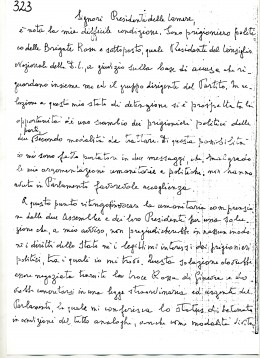 323
Signori Presidenti delle Camere,
è nota la mia difficile condizione. Sono prigioniero politi
co delle Brigate Rosse e sottoposto, quale Presidente del Consiglio
nazionale della D.C., a giudizio sulla base di accuse che ri
guardano insieme me ed il gruppo dirigente del Partito. In re
lazione a questo mio stato di detenzione si è prospettata la
opportunità di uno scambio dei prigionieri politici delle
parti
due secondo modalità da trattare. Di questa possibilità
mi sono fatto portatore in due messaggi, che
le mie argomentazioni umanitarie e politiche, non hanno
avuto in Parlamento favorevole accoglienza.
A questo punto la umanitaria comprensio
ne delle due Assemblee e dei loro Presidenti per una solu
zione che, a mio avviso, non pregiudicherebbe in nessun modo
né i diritti dello Stato né i legittimi interessi dei prigionieri
politici, tra i quali io mi trovo. Questa soluzione dovrebbe
esser negoziata tramite la Croce Rossa di Ginevra e do
vrebbe concretarsi in una legge straordinaria ed urgente del
Parlamento, la quale mi conferisca lo status di detenuto
in condizioni del tutto analoghe, anche come modalità di